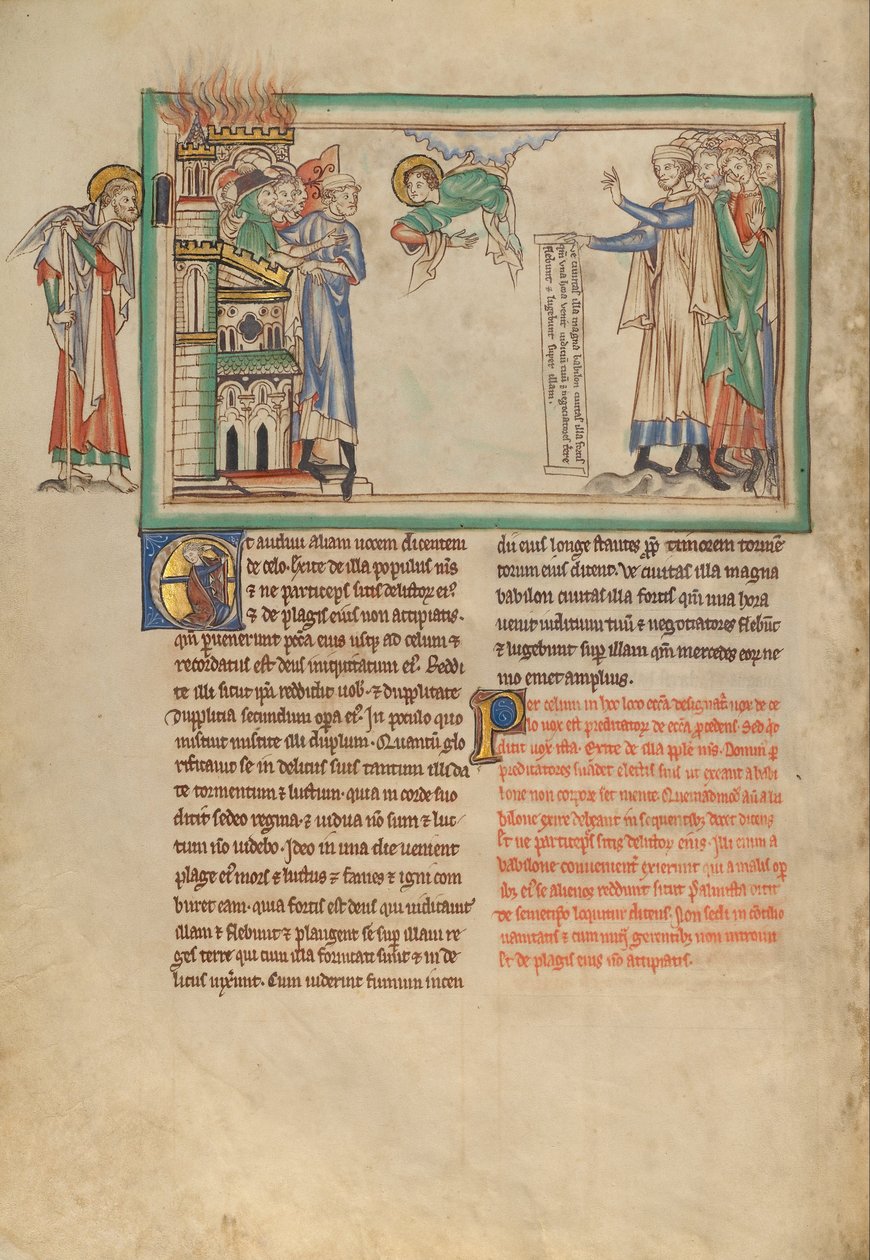 Ve ciuitas illa magna babilon ciuitas illa fortis
qm̄ vna hora venit iudiciū tuū ⁊ negociatores terre
flebunt ⁊ lugebunt super illam.
Et audiui aliam uocem dicentem
de celo. Exite de illa populus m̄s
⁊ ne participes sitis delictoꝝ eiꝰ
⁊ de plagis eius non accipiatis.
qm̄ ꝑuenerunt pctā eius usqꝫ ad celum ⁊
recordatus est deus iniquitatum eiꝰ. Reddi
te illi sicut ip̄a reddidit uob̄. ⁊ dupplicate
dupplicia secundum oꝑa eiꝰ. In poculo quo
miscuit miscite illi duplum. Quantū glo
rificauit se in deliciis suis tantum illi da
te tormentum ⁊ luctum. quia in corde suo
dicit sedeo regina. ⁊ uidua nō sum ⁊ luc
tum nō uidebo. Ideo in una die uenient
plage eiꝰ mors ⁊ luctus ⁊ fames ⁊ igni com
buret eam. quia fortis est deus qui iudicauit
illam ⁊ flebunt ⁊ plangent se suꝑ illam re
ges terre qui cum illa fornicati sunt ⁊ in de
liciis uixerunt. Cum uiderint fumum incen
dii eius longe stantes ꝓpt̄ timorem tormē
torum eius dicent. Ve ciuitas illa magna
babilon ciuitas illa fortis qm̄ una hora
uenit iudicium tuū ⁊ negociatores flebūt
⁊ lugebunt suꝑ illam qm̄ mercedes eoꝝ ne
mo emet amplius.
Per celum in hoc loco eccā designat̄ uox de ce
lo uox est predicatoꝝ de eccā ꝓcedens. Sed qd̄
dicit uox ista. Exite de illa pple m̄s. Dominꝰ ꝑ
predicatores suadet electis suis ut exeant a babi
lone non corpore set mente. Quemadmodū aū a ba
bilone exire debeant in sequentibꝫ docet dicens
Et ne participes sitis delictoꝝ eius. Illi enim a
babilone conuenient̄ exierunt qui a malis oꝑ
ibꝫ eiꝰ se alienos reddunt sicut psalmista
de semetip̄o loquitur dicens. Non sedi in consilio
uanitatis ⁊ cum iniq̄ gerentibꝫ non introibo
Et de plagis eius nō accipiatis.